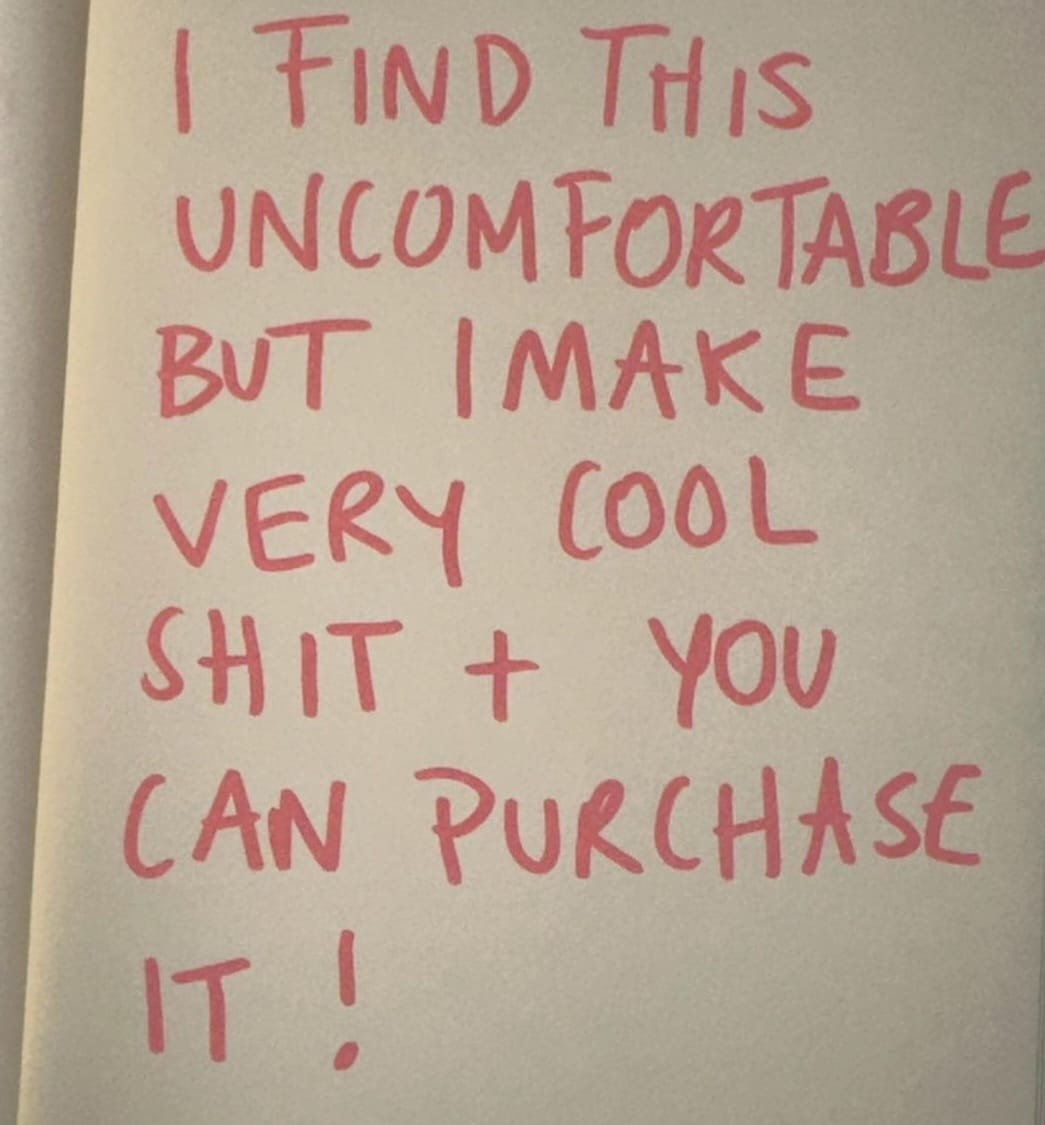 I FIND THIS
UNCOMFORTABLE
BUT I MAKE
VERY COOL
SHIT + YOU
CAN PURCHASE
IT !